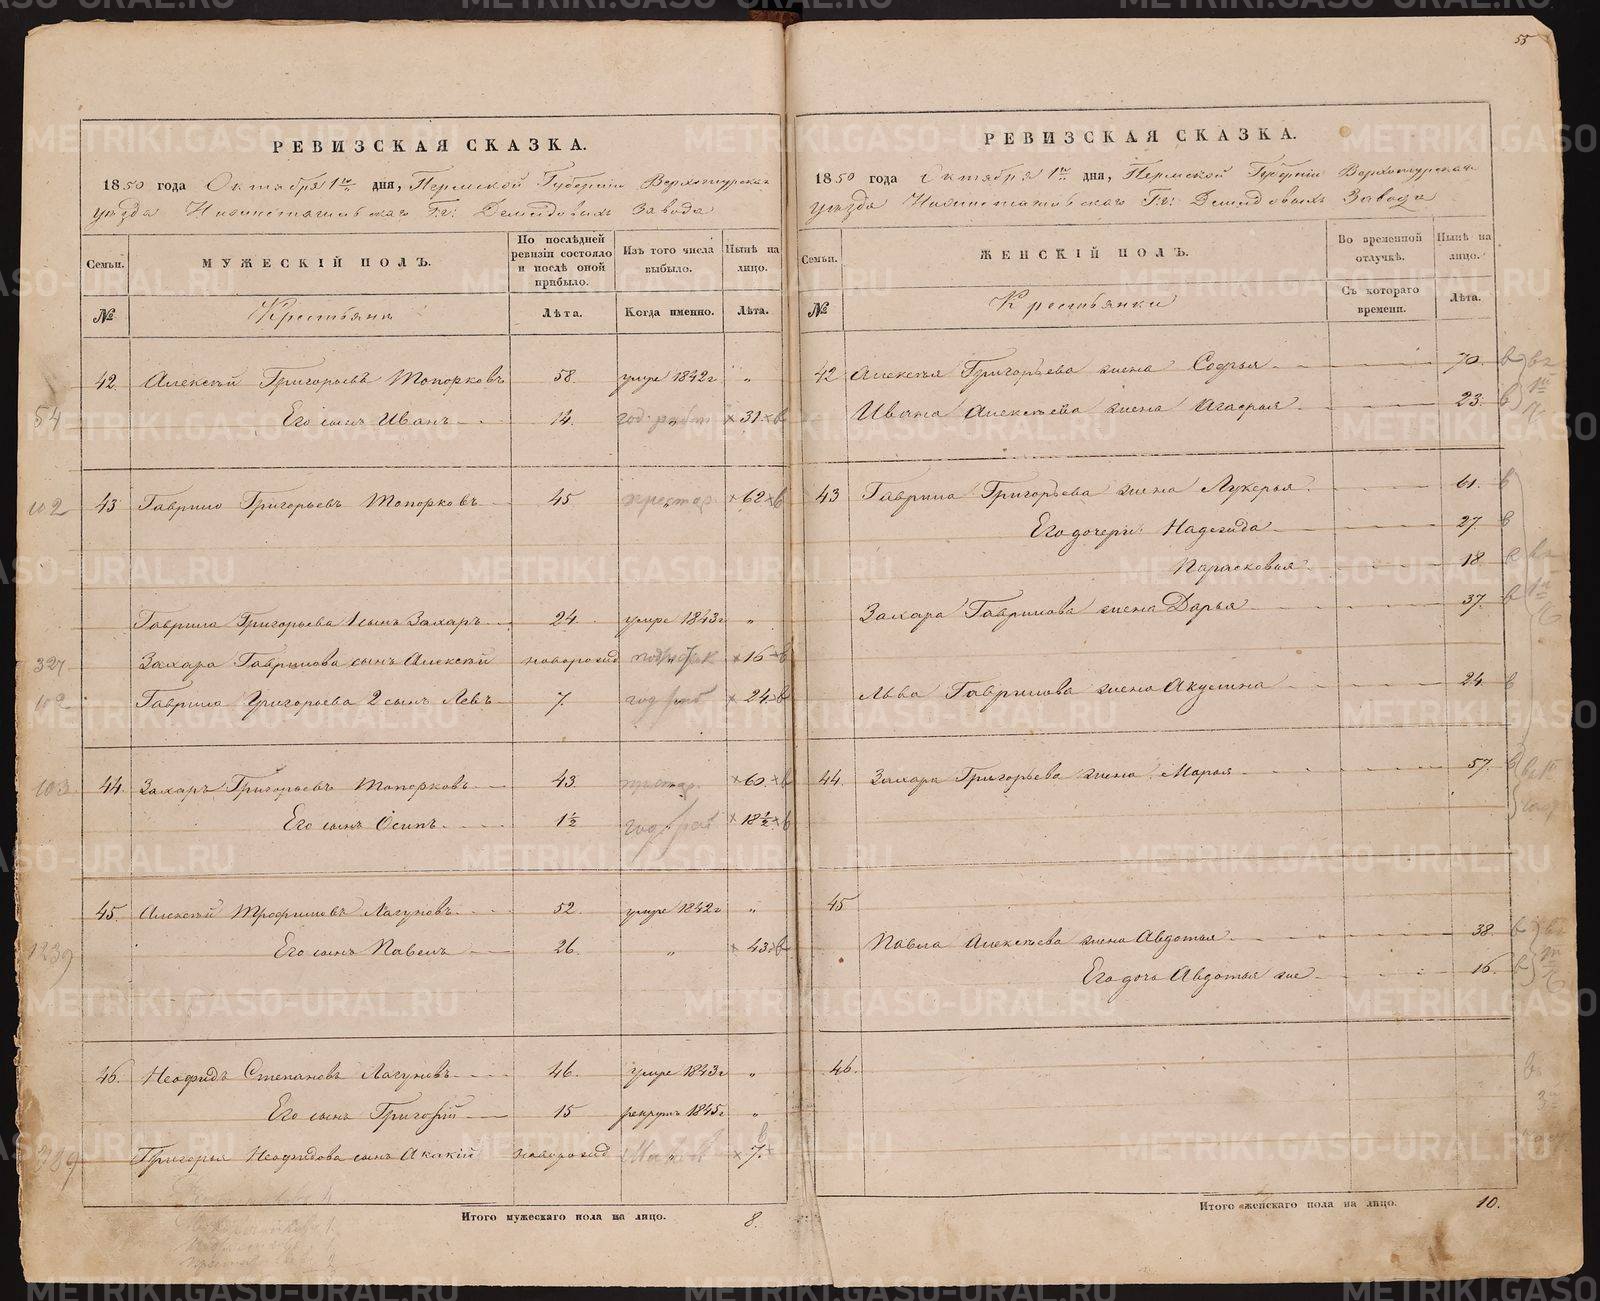 55
РЕВИЗСКАЯ СКАЗКА.
1850 года Октября 1го дня, Пермской Губернiи Верхотурскаго
уѣзда Нижнетагильскаго Гг: Демидовыхъ Завода
Семьи.
МУЖЕСКІЙ ПОЛЪ.
По послѣдней ревизіи состояло и послѣ оной прибыло.
Изъ того числа выбыло.
Нынѣ на лицо.
№
Крестьянъ
Лѣта.
Когда именно.
Лѣта.
42. Алексѣй Григорьевъ Топорковъ 58. умре 1842 г „
54 Его сынъ Иванъ 14. × 31 × в
102 43 Гаврило Григорьевъ Топорковъ 45 престар. × 62 × в
Гаврила Григорьева 1 сынъ Захаръ 24. умре 1843 г „
327 Захара Гаврилова сынъ Алексѣй новорожд × 16 × в
Гаврила Григорьева 2 сынъ Левъ 7. × 24 × в
103 44. Захаръ Григорьевъ Топорковъ 43. престар. × 60 × в
Его сынъ Осипъ 1½ × 18½ × в
45. Алексѣй Трофимовъ Лагуновъ 52. умре 1842 г „
1239 Его сынъ Павелъ 26. „ × 43 × в
46. Неофидъ Степановъ Лагуновъ 46. умре 1843 г „
Его сынъ Григорій 15 рекрутъ 1845 г „
Григорья Неофидова сынъ Акакій новорожд × 7 × в
Итого мужескаго пола на лицо. 8.
РЕВИЗСКАЯ СКАЗКА.
1850 года Октября 1го дня, Пермской Губернiи Верхотурскаго
уѣзда Нижнетагильскаго Гг: Демидовыхъ Завода
Семьи.
ЖЕНСКІЙ ПОЛЪ.
Во временной отлучкѣ.
Нынѣ на лицо.
№
Крестьянки
Съ котораго времени.
Лѣта.
42 Алексѣя Григорьева жена Софья 70. в
Ивана Алексѣева жена Агафья 23. в
43 Гаврила Григорьева жена Лукерья 61. в
Его дочери: Надежда 27. в
Парасковья 18 в
Захара Гаврилова жена Дарья 37. в
Льва Гаврилова жена Акулина 24. в
44. Захара Григорьева жена Марья 57. в
45
Павла Алексѣева жена Авдотья 38. в
Его дочь Авдотья же 16. в
46.
Итого женскаго пола на лицо. 10.
METRIKI.GASO-URAL.RU